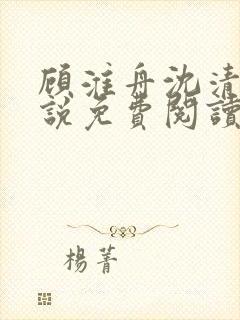 顧淮舟沈清
說免費閱讀
楊菁